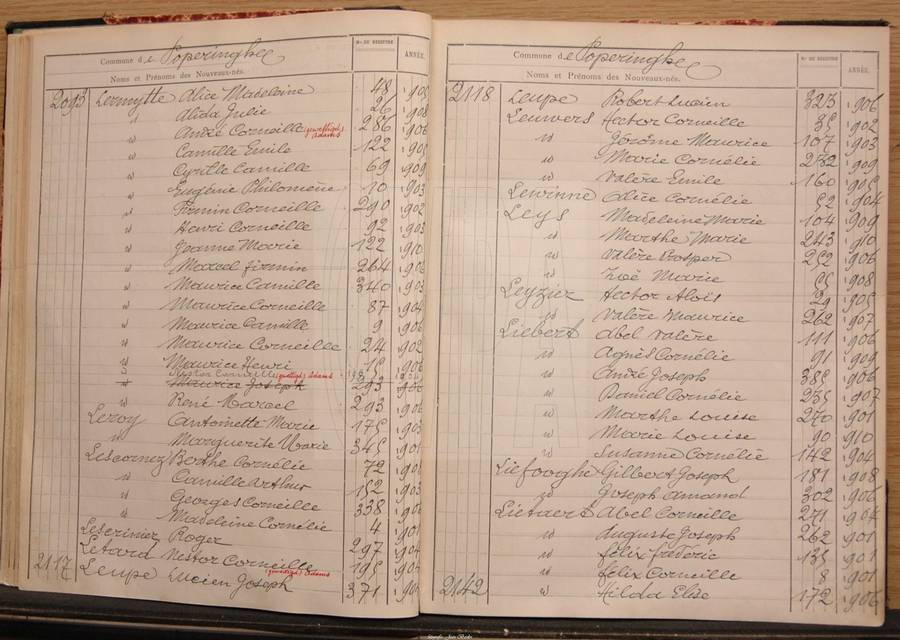 Commune de Poperinghe
Nos DU REGISTRE
ANNÉE
Noms et Prénoms des Nouveaux-nés.
2093 Lermytte Alice Madeleine 48
" Alida Julie 26
" André Corneille 286
" Camille Emile 122
" Cyrille Camille 69 1909
" Eugénie Philomène 10 1903
" Firmin Corneille 290 1902
" Henri Corneille 92 1903
" Jeanne Marie 122 1910
" Marcel Firmin 264 1906
" Maurice Camille 340 1903
" Maurice Corneille 87
" Maurice Camille 9
" Maurice Corneille 24 1902
" Maurice Henri 15
Maurice Joseph 293
" René Marcel 293
Leroy Antoinette Marie 175
" Marguerite Marie 345
Lescornez Berthe Cornélie 72
" Camille Arthur 152
" Georges Corneille 338
" Madeleine Cornélie 4
Leserinier Roger 297
Letard Nestor Corneille 195
2117 Leupe Lucien Joseph 371
Commune de Poperinghe
Nos DU REGISTRE
ANNÉE.
Noms et Prénoms des Nouveaux-nés.
2118 Leupe Robert Lucien 323 1906
Leuwers Hector Corneille 35 1902
" Jérôme Maurice 107 1903
" Marie Cornélie 232 1909
" Valère Emile 160 1905
Lewinne Alice Cornélie 52 1904
Leys Madeleine Marie 104 1909
" Marthe Marie 243 1910
" Valère Prosper 252 1906
" Zoë Marie 55 1908
Leyzier Hector Aloïs 29 1905
" Valère Maurice 262 1907
Liebert Abel Valère 111 1906
" Agnès Cornélie 91 1909
" André Joseph 385 1906
" Daniel Cornélie 235 1907
" Marthe Louise 270 1901
" Marie Louise 90 1910
" Susanne Cornélie 142 1904
Liefooghe Gilbert Joseph 181 1908
" Joseph Amand 302 1906
Lietaert Abel Corneille 271 1904
" Auguste Joseph 262 1901
" Félix Frédéric 135 1901
" Félix Corneille 8 1901
2142 " Hilda Elise 172 1906